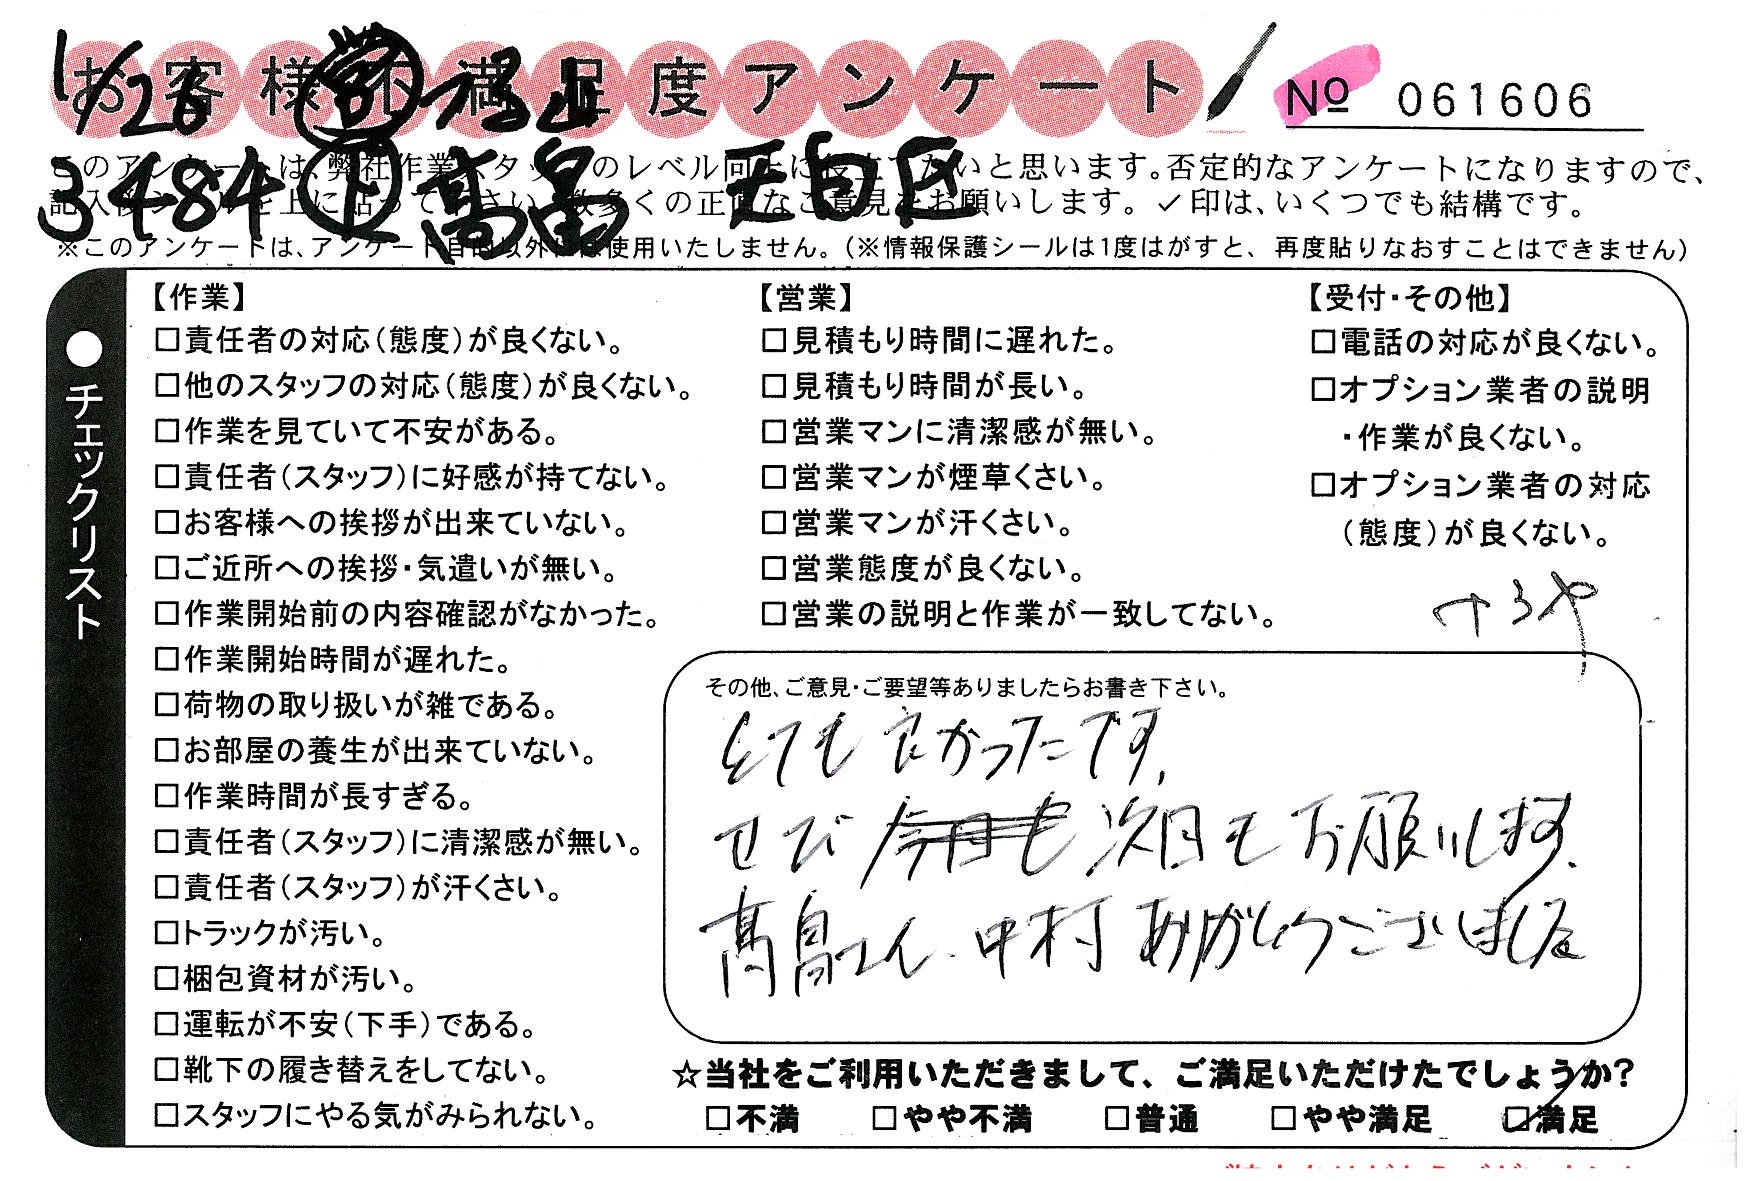 お客様不満足度アンケート
No 061606
1/26
3484 下 高畠 天白区
このアンケートは、弊社作業スタッフのレベル向上に役立てたいと思います。否定的なアンケートになりますので、
記入後シールを上に貼って下さい。数多くの正直なご意見をお願いします。✓印は、いくつでも結構です。
※このアンケートは、アンケート目的以外には使用いたしません。(※情報保護シールは1度はがすと、再度貼りなおすことはできません)
●チェックリスト
【作業】
□責任者の対応(態度)が良くない。
□他のスタッフの対応(態度)が良くない。
□作業を見ていて不安がある。
□責任者(スタッフ)に好感が持てない。
□お客様への挨拶が出来ていない。
□ご近所への挨拶・気遣いが無い。
□作業開始前の内容確認がなかった。
□作業開始時間が遅れた。
□荷物の取り扱いが雑である。
□お部屋の養生が出来ていない。
□作業時間が長すぎる。
□責任者(スタッフ)に清潔感が無い。
□責任者(スタッフ)が汗くさい。
□トラックが汚い。
□梱包資材が汚い。
□運転が不安(下手)である。
□靴下の履き替えをしてない。
□スタッフにやる気がみられない。
【営業】
□見積もり時間に遅れた。
□見積もり時間が長い。
□営業マンに清潔感が無い。
□営業マンが煙草くさい。
□営業マンが汗くさい。
□営業態度が良くない。
□営業の説明と作業が一致してない。
【受付・その他】
□電話の対応が良くない。
□オプション業者の説明
・作業が良くない。
□オプション業者の対応
(態度)が良くない。
その他、ご意見・ご要望等ありましたらお書き下さい。
とても良かったです。
ぜひ 今回も 次回もお願いします。
高畠さん、中村 ありがとうございました
☆当社をご利用いただきまして、ご満足いただけたでしょうか?
□不満 □やや不満 □普通 □やや満足 ☑満足